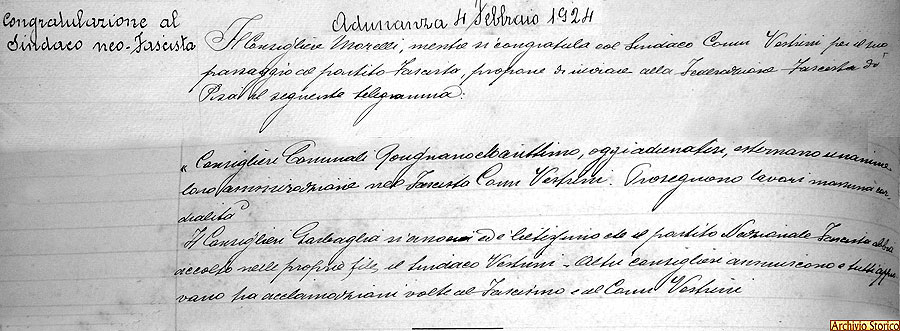 Congratulazione al
Sindaco neo-Fascista
Adunanza 4 Febbraio 1924
Il Consigliere Morelli, mentre si congratula col Sindaco Comm Vestrini per il suo
passaggio al partito Fascista, propone di inviare alla Federazione Fascista di
Pisa il seguente telegramma:
"Consiglieri Comunali Rosignano Marittimo, oggi adunatisi, esternano unanime
loro ammirazione neo Fascista Comm Vestrini. Proseguono lavori massima cor-
dialità
Il Consigliere Garbaglia si ed è lietissimo che il partito Nazionale Fascista abbia
accolto nelle proprie file il Sindaco Vestrini - Altri consiglieri annuiscono e tutti appro-
vano fra acclamazioni volte al Fascismo e al Comm Vestrini
Archivio Storico